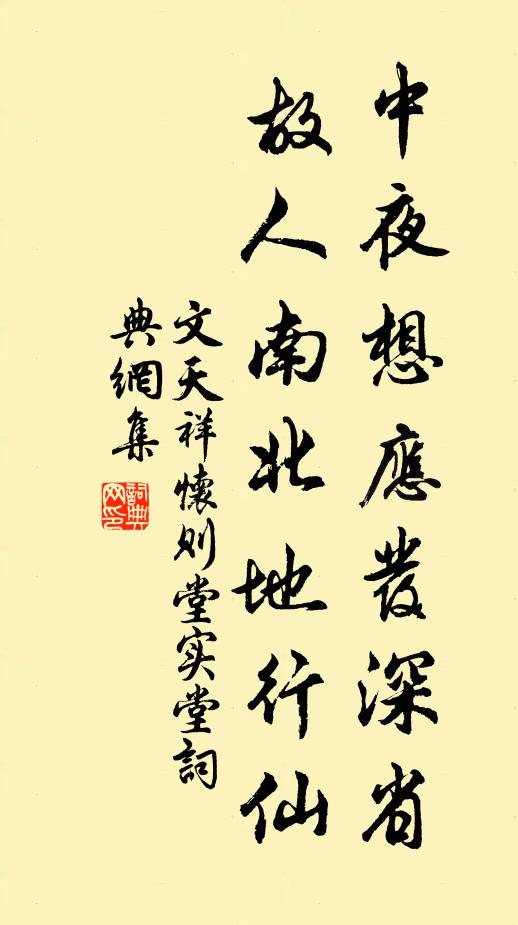 中夜想應發深省
故人南北地行仙
文天祥懷则堂实堂詞
典網集
詞典網印